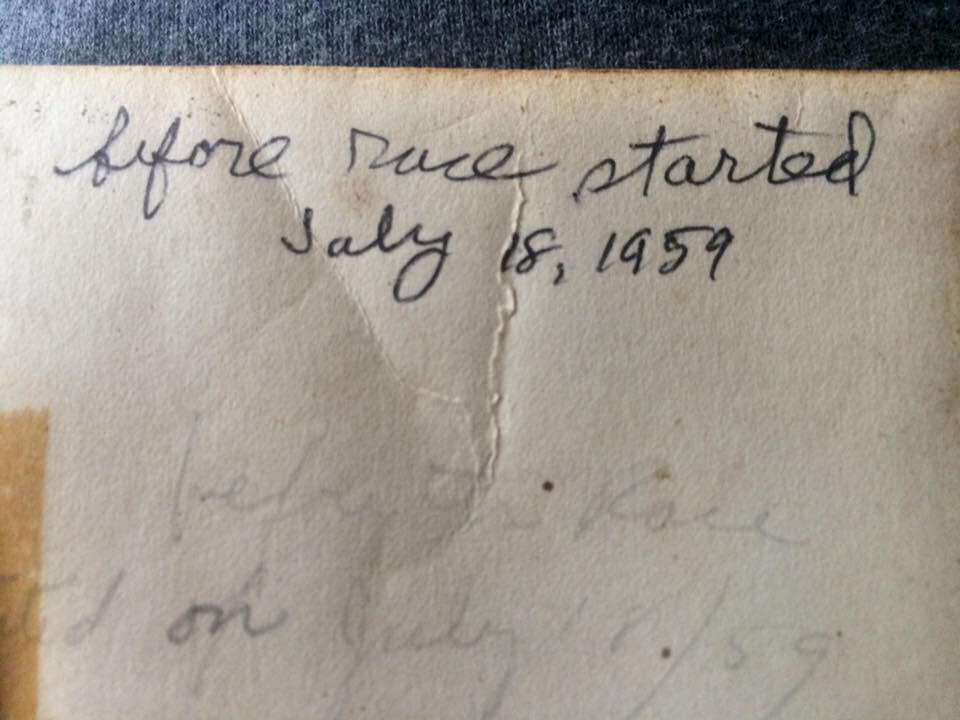 before race started
July 18, 1959
before the Race
ted on July 18/59